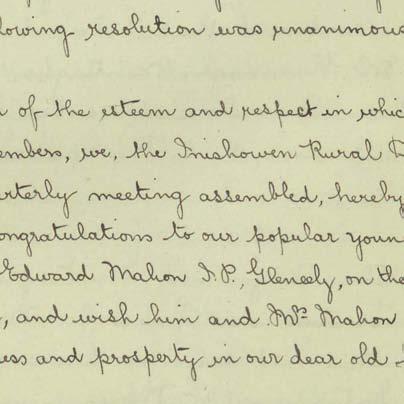 lowing resolution was unanimous
n of the esteem and respect in whic
embers, we, the Inishowen Rural D
arterly meeting assembled, hereby
ongratulations to our popular youn
Edward Mahon J.P., Gleneely, on the
, and wish him and Mrs Mahon
ess and prosperty in our dear old